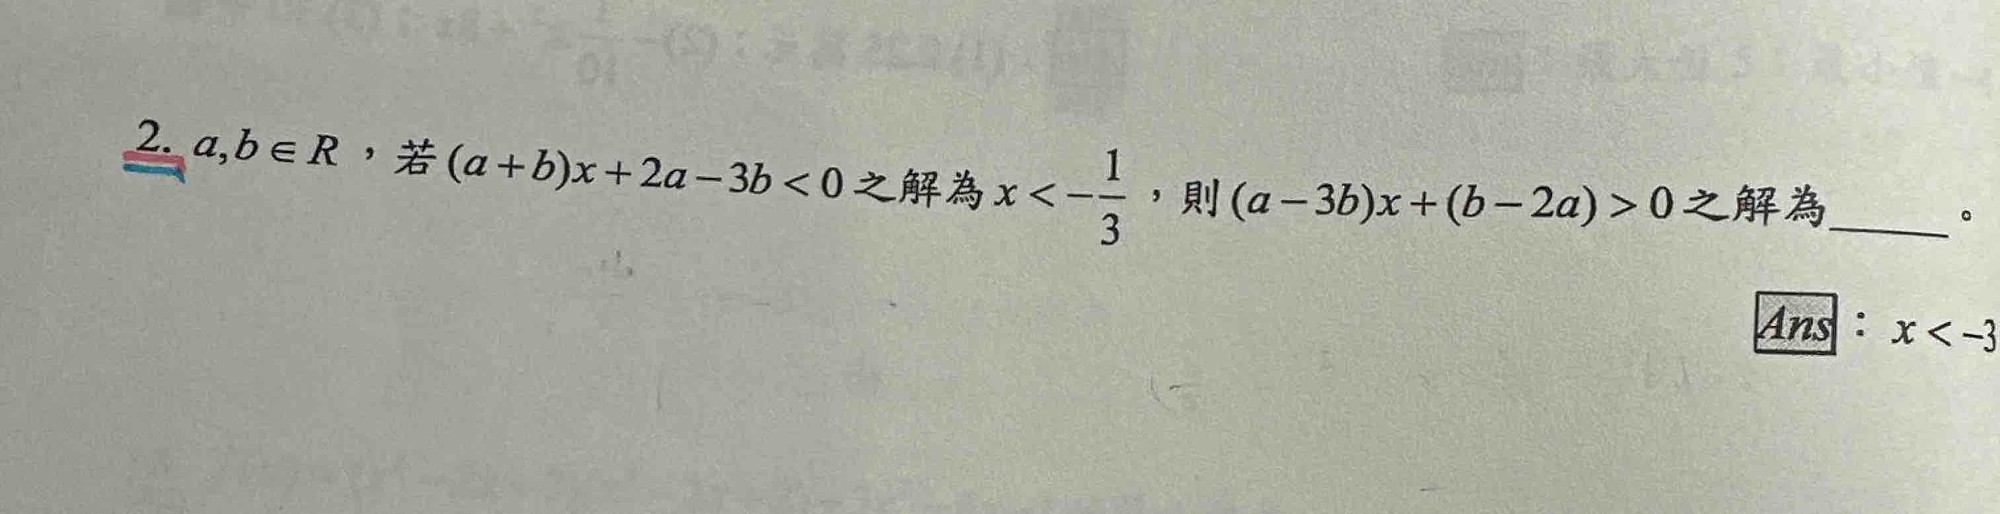 2. a,b∈R，若(a+b)x+2a−3b<0之解為x<−1/3，則(a−3b)x+(b−2a)>0之解為_____。
Ans：x<−3